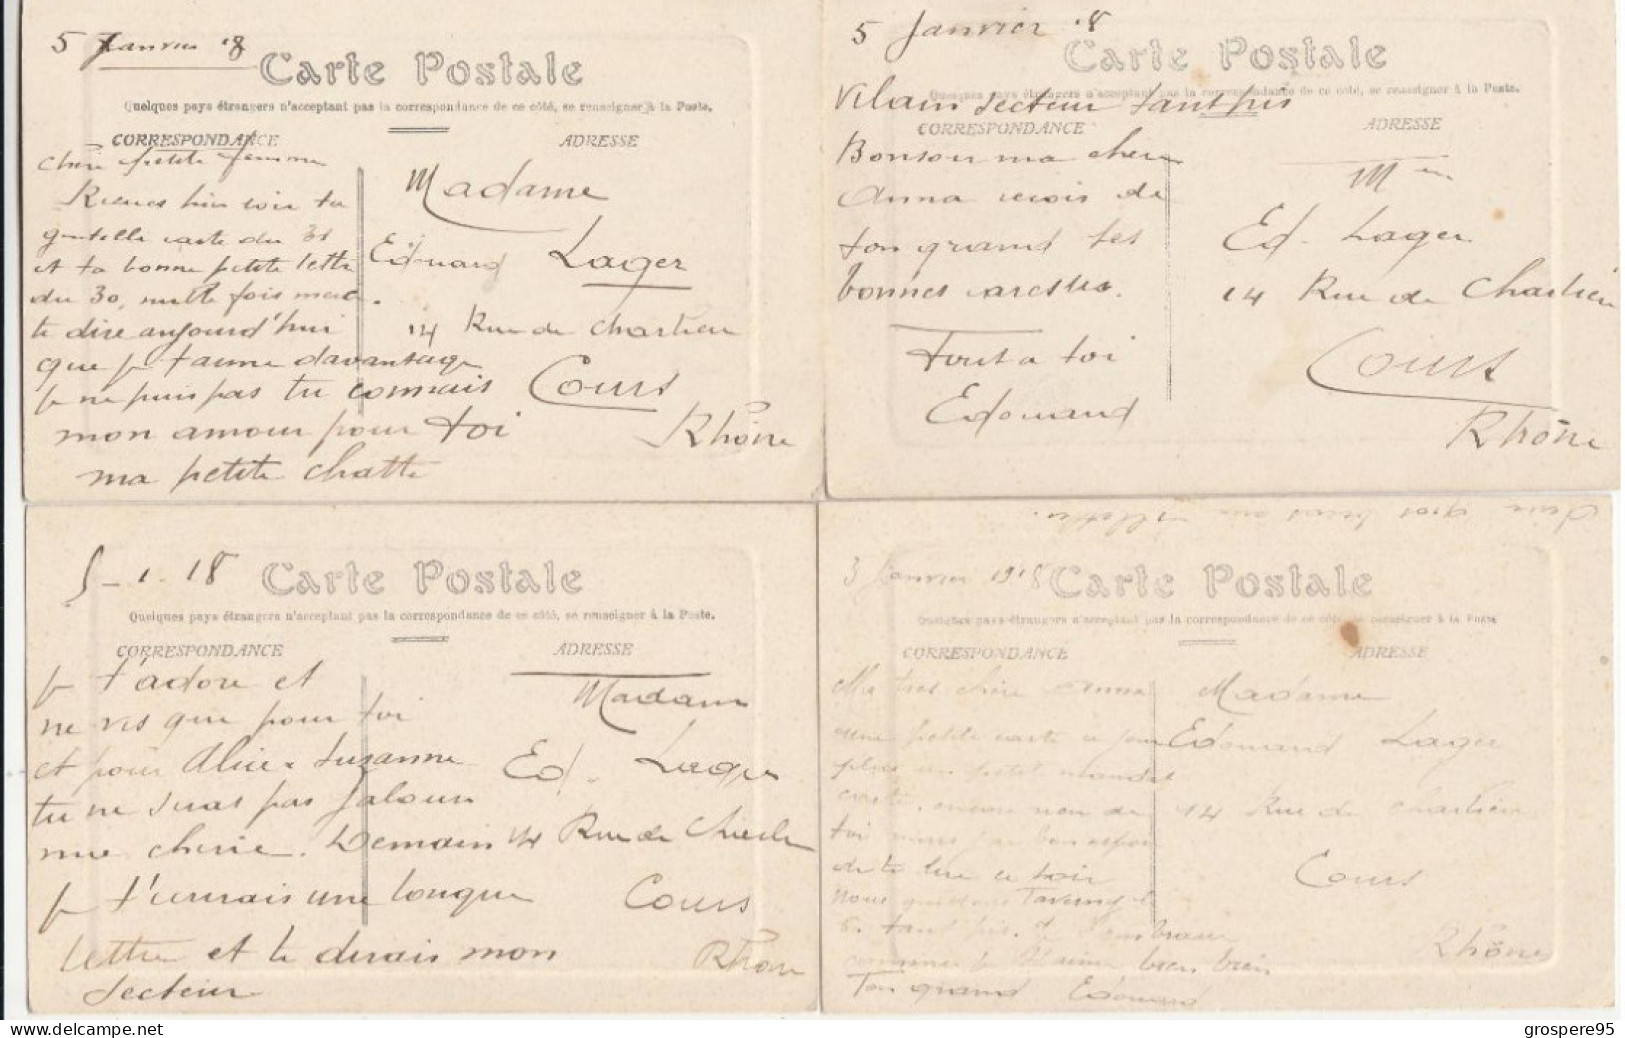 5 Janvier 18
Carte Postale
Quelques pays étrangers n'acceptant pas la correspondance de ce côté, se renseigner à la Poste.
CORRESPONDANCE
ADRESSE
chère petite femme
Recues hier soir ta
gentille carte du 31
et ta bonne petite lettre
du 30, mille fois merci.
te dire aujourd'hui
que je t'aime davantage
je ne puis pas tu connais
mon amour pour toi
ma petite chatte
Madame
Edouard Lager
14 Rue de Chartieu
Cours
Rhône
5 Janvier 18
Carte Postale
Quelques pays étrangers n'acceptant pas la correspondance de ce côté, se renseigner à la Poste.
Vilain secteur tant pis
CORRESPONDANCE
ADRESSE
Bonsoir ma chere
Anna recois de
ton grand ses
bonnes caresses.
Tout a toi
Edouard
Ed. Lager
14 Rue de Charlieu
Cours
Rhône
5-1-18
Carte Postale
Quelques pays étrangers n'acceptant pas la correspondance de ce côté, se renseigner à la Poste.
CORRESPONDANCE
ADRESSE
je t'adore et
ne vis que pour toi
et pour Alice & Suzanne
tu ne seras pas jalouse
mie cherie. Demain
je t'ecrirais une longue
lettre et te dirais mon
secteur
Madame
Ed. Lager
14 Rue de
Cours
Rhône
3 Janvier 1918
Carte Postale
Quelques pays étrangers n'acceptant pas la correspondance de ce côté, se renseigner à la Poste
CORRESPONDANCE
ADRESSE
Ma tres chère Anna
une petite carte a
plus un petit mandat
carte, encore rien de
toi mais j'ai bon espoir
de te lire ce soir
nous
tant pis.
bien bien
Ton grand Edouard
Madame
Edouard Lager
14 Rue de Charlieu
Cours
Rhône
grospere95